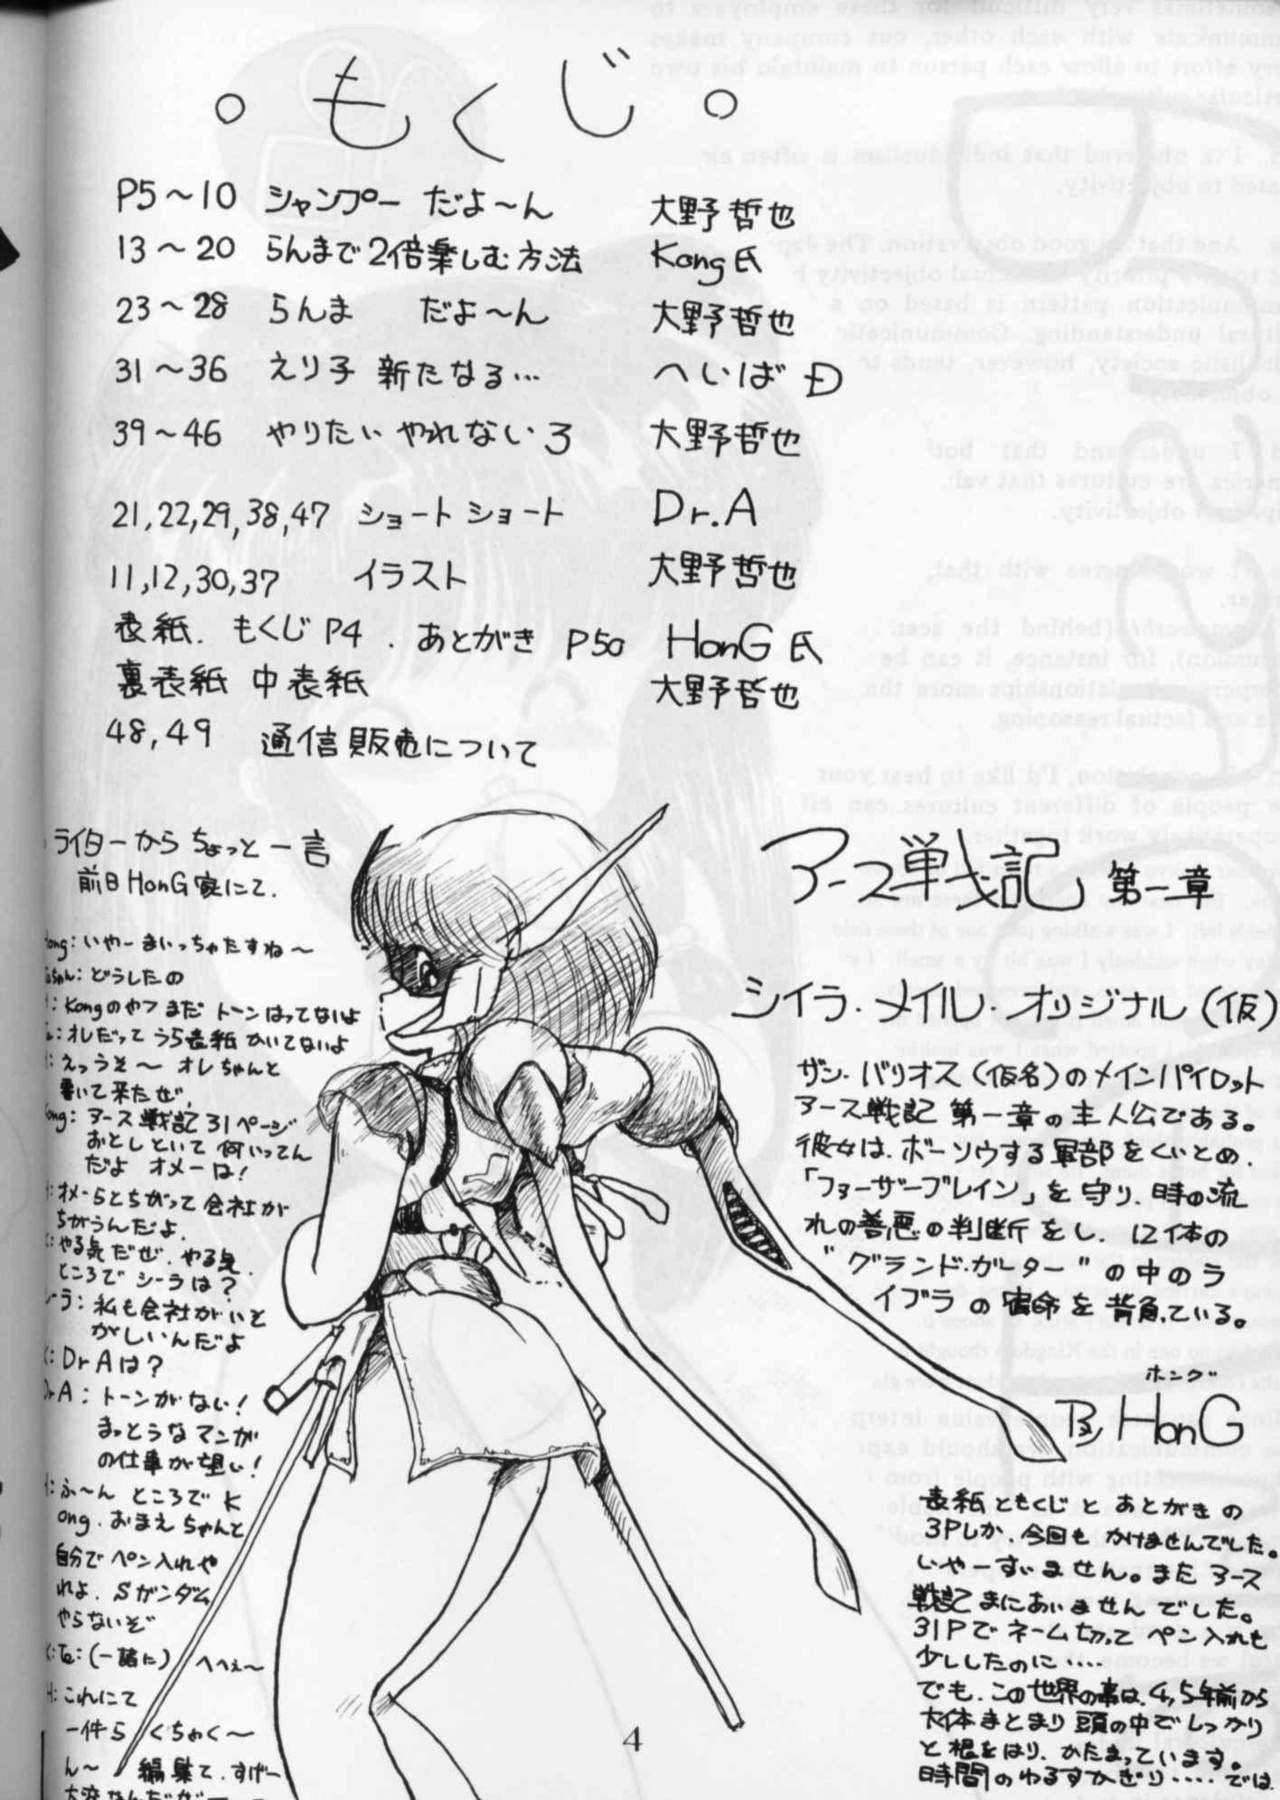 。もくじ。
P5～10 シャンプー だよ～ん 大野哲也
13～20 らんまで2倍楽しむ方法 Kong氏
23～28 らんま だよ～ん 大野哲也
31～36 えり子 新たなる… へいば Đ
39～46 やりたい やれない 3 大野哲也
21,22,29,38,47 ショートショート Dr.A
11,12,30,37 イラスト 大野哲也
表紙. もくじP4. あとがき P50 HonG氏
裏表紙 中表紙 大野哲也
48,49 通信販売について
ライターからちょっと一言
前日HonG家にて.
ong: いやーまいっちゃたすね～
どうしたの
: Kongのやつまだ トーンはってないよ
: オレだって うら表紙 かいてないよ
: えっうそ～ オレちゃんと
書いて来たぜ.
ong: アース戦記31ページ
おとしといて 何いってん
だよ オメーは!
: オメーらとちがって会社が
ちがうんだよ.
: やる気だぜ. やる気.
ところで シーラは?
ーラ: 私も会社がいそ
がしいんだよ
: DrAは?
DrA: トーンがない!
まっとうなマンガ
の仕事が望い!
: ふ～ん ところでK
ong. おまえちゃんと
自分でペン入れや
れよ. Sガンダム
やらないぞ
(一諸に) へへぇ～
H: これにて
一件ら くちゃく～
ん～ 編集て. すげー
アース戦記 第一章
シイラ・メイル・オリジナル(仮)
ザン・バリオス(仮名)のメインパイロット
アース戦記 第一章の主人公である。
彼女は、ボーソウする軍部をくいとめ、
「ファーザーブレイン」を守り、時の流
れの善悪の判断をし、12体の
"グランド・ガーター"の中のラ
イブラの宿命を背負ている。
ホング
By HonG
表紙ともくじとあとがきの
3Pしか、今回もかけませんでした。
いやーすいません。またアース
戦記まにあいませんでした。
31Pでネーム切ってペン入れも
少ししたのに‥‥
でも、この世界の事は、4,5年前から
大体まとまり頭の中でしっかり
と根をはり、かたまっています。
時間のゆるすかぎり‥‥では
4